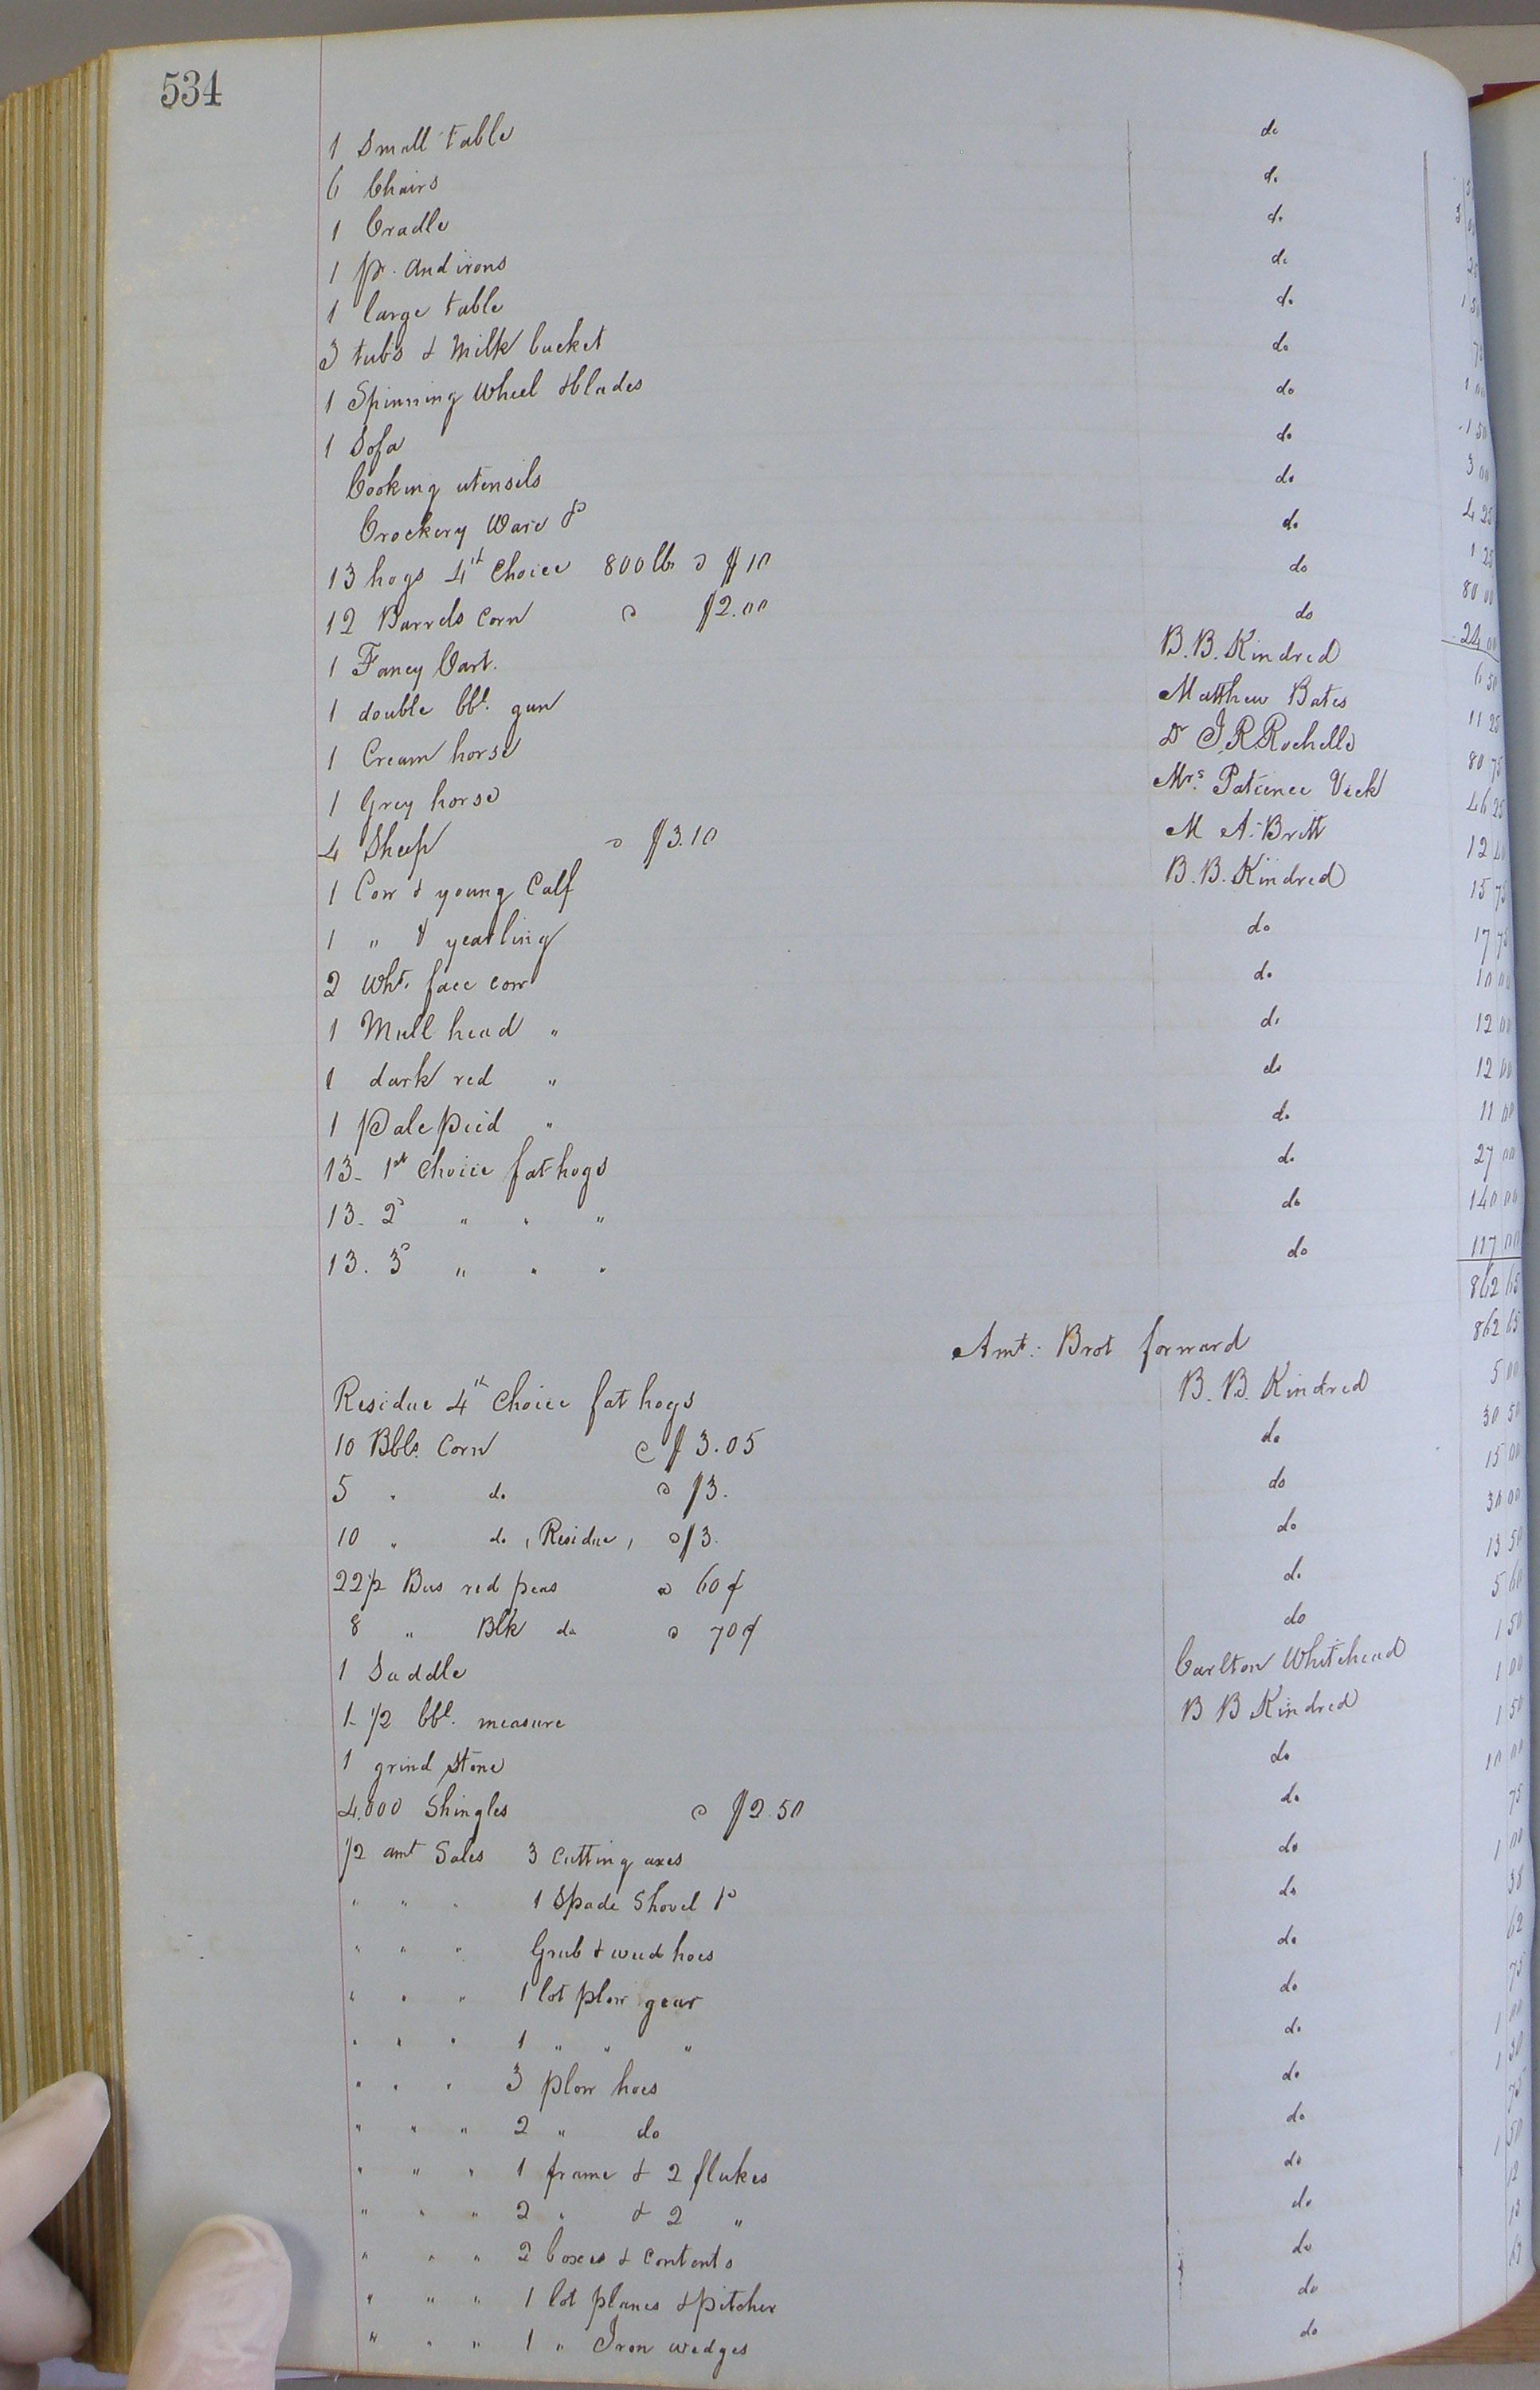 534
1 Small table do
6 Chairs do
1 Cradle do
1 pr. Andirons do
1 large table do
3 tubs & Milk bucket do
1 Spinning Wheel & blades do 1 00
1 Sofa do 1 50
Cooking utensils do 3 00
Crockery Ware &c do 4 25
13 hogs 4th Choice 800 lbs @ $10 do 80 00
12 Barrels Corn @ $2.00 do 24 00
1 Fancy Cart. B. B. Kindred 6 50
1 double bbl. gun Matthew Bates 11 25
1 Cream horse Dr J. R. Rochelle 80 75
1 Grey horse Mrs. Patience Vick 46 25
4 Sheep @ $3.10 M A. Britt 12 40
1 Cow & young Calf B. B. Kindred 15 75
1 " & yearling do 17 75
2 Wht. face cow do 10 00
1 Mull head " do 12 00
1 dark red " do 12 00
1 Pale pied " do 11 00
13. 1st Choice fat hogs do 27 00
13. 2d " " " do 140 00
13. 3d " " " do 117 00
862 65
Amt. Brot forward 862 65
Residue 4th Choice fat hogs B. B. Kindred 5 00
10 Bbls. Corn @ $3.05 do 30 50
5 " do @ $3. do 15 00
10 " do (Residue) @ $3. do 30 00
22 1/2 Bus red peas @ 60¢ do 13 50
8 " Blk do @ 70¢ do 5 60
1 Saddle Carlton Whitehead 1 50
1- 1/2 bbl. measure B B Kindred 1 00
1 grind stone do 1 50
4.000 Shingles @ $2.50 do 10 00
1/2 amt Sales 3 Cutting axes do 75
" " " 1 Spade Shovel &c do 1 00
" " " Grub & weed hoes do 38
" " " 1 lot plow gear do 62
" " " 1 " " " do 75
" " " 3 plow hoes do 1 00
" " " 2 " do do 1 50
" " " 1 frame & 2 flukes do 75
" " " 2 " & 2 " do 1 50
" " " 2 boxes & contents do 12
" " " 1 lot planes & pitcher do 13
" " " 1 " Iron wedges do 63